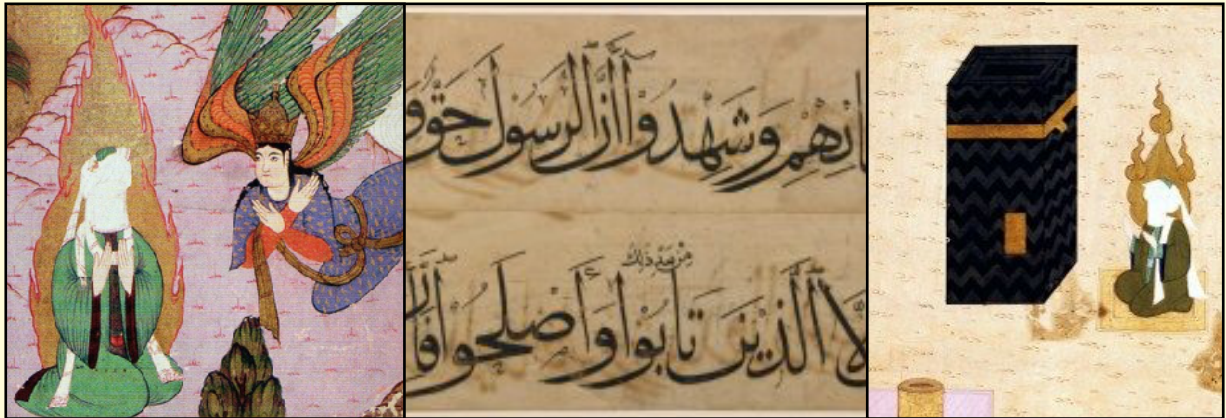 مَانِهِمْ وَشَهِدُوْا أَنَّ الرَّسُولَ حَقٌّ وَ
مِنْ بَعْدِ ذَلِكَ
لَّا الَّذِينَ تَابُوا وَأَصْلَحُوا فَإِنَّ